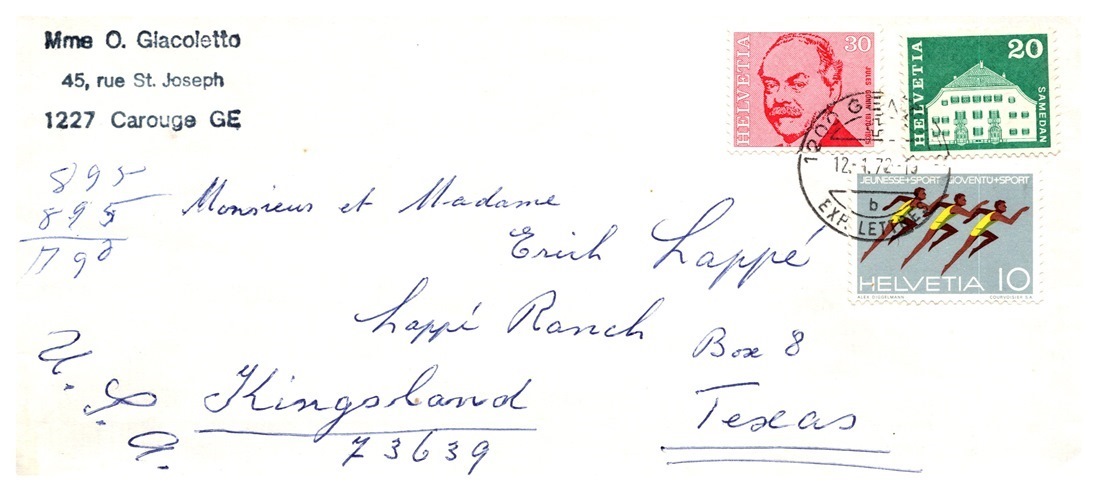 Mme O. Giacoletto
45, rue St. Joseph
1227 Carouge GE
HELVETIA
30
JULES GONIN
HELVETIA
20
SAMEDAN
12.-1.72-
b
EXP. LETTRES
JEUNESSE+SPORT GIOVENTÙ+SPORT
HELVETIA 10
ALEX DIGGELMANN COURVOISIER S.A.
895
895
1790
Monsieur et Madame
Erich Lappé
Lappé Ranch
Box 8
Kingsland
Texas
73639
U.S.A.